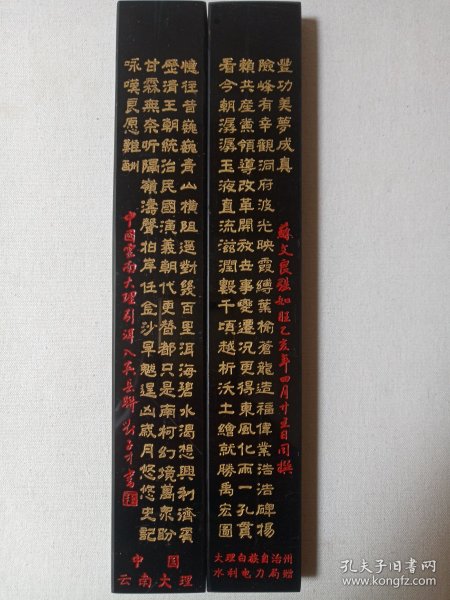 憶往昔巍巍青山橫阻逕對幾百里洱海碧水渴想興利濟賓
歷清王朝統治民國演義朝代更替都只是南柯幻境萬眾盼
甘霖無奈听隔嶺濤聲拍岸任金沙旱魃逞凶歲月悠悠史記
咏嘆良愿難酬
中國雲南大理引洱入賓
書
中国
云南大理
看今朝潺潺玉液直流滋潤轂千頃越析沃土繪就勝禹宏圖
賴共産黨領導改革開放世事變遷況更得東風化雨一孔貫
險峰有幸觀洞府波光映霞縛葉榆蒼龍造福偉業浩浩碑楊
豐功美夢成真
蘇文良張如旺乙亥年四月廿五日同撰
大理白族自治州
水利电力局赠
孔夫子旧书网